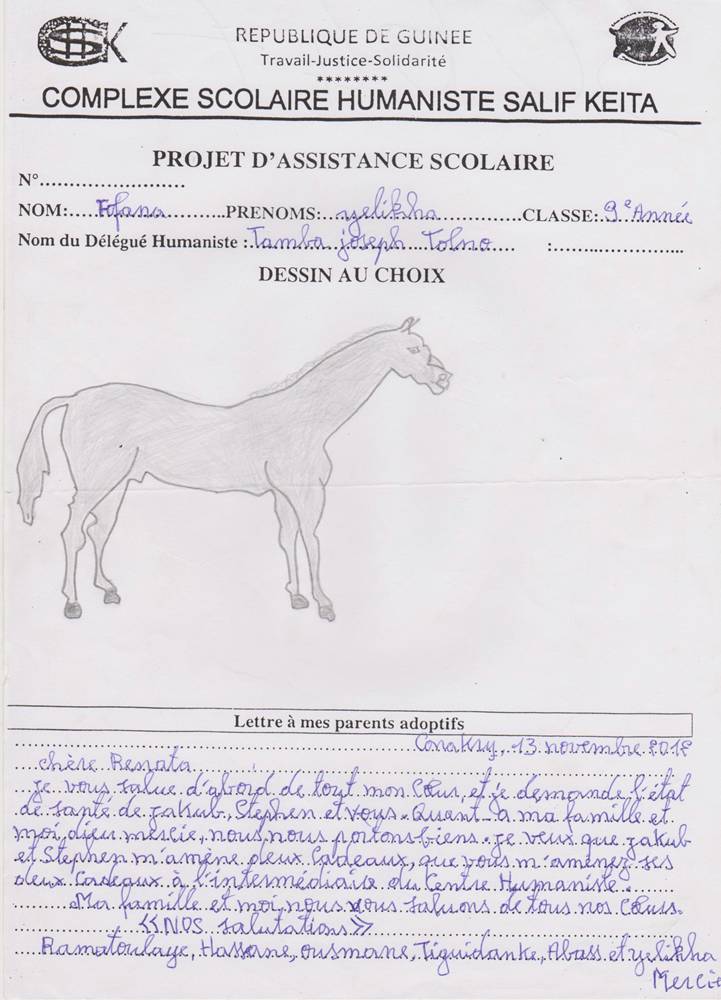 SHK
REPUBLIQUE DE GUINEE
Travail-Justice-Solidarité
********
COMPLEXE SCOLAIRE HUMANISTE SALIF KEITA
PROJET D'ASSISTANCE SCOLAIRE
N°........................
NOM:....Fofana..........PRENOMS:..yelikha..............CLASSE:..9e Année
Nom du Délégué Humaniste :.Tamba joseph Tolno.... :......................
DESSIN AU CHOIX
Lettre à mes parents adoptifs
Conakry, 13 novembre 2012
chère Renata
je vous salue d'abord de tout mon Cœur, et je demande l'état
de santé de jakub, Stephen et vous. Quant à ma famille et
moi, dieu mercie, nous nous portons biens. je veux que jakub
et Stephen m'amène deux Cadeaux, que vous m'aminez ses
deux Cadeaux à l'intermédiaire du Centre Humaniste.
Ma famille et moi, nous vous saluons de tous nos Cœurs.
<<NOS salutations>>
Ramatoulaye, Hassane, ousmane, Tiguidanke, Abass et yelikha
Mercie